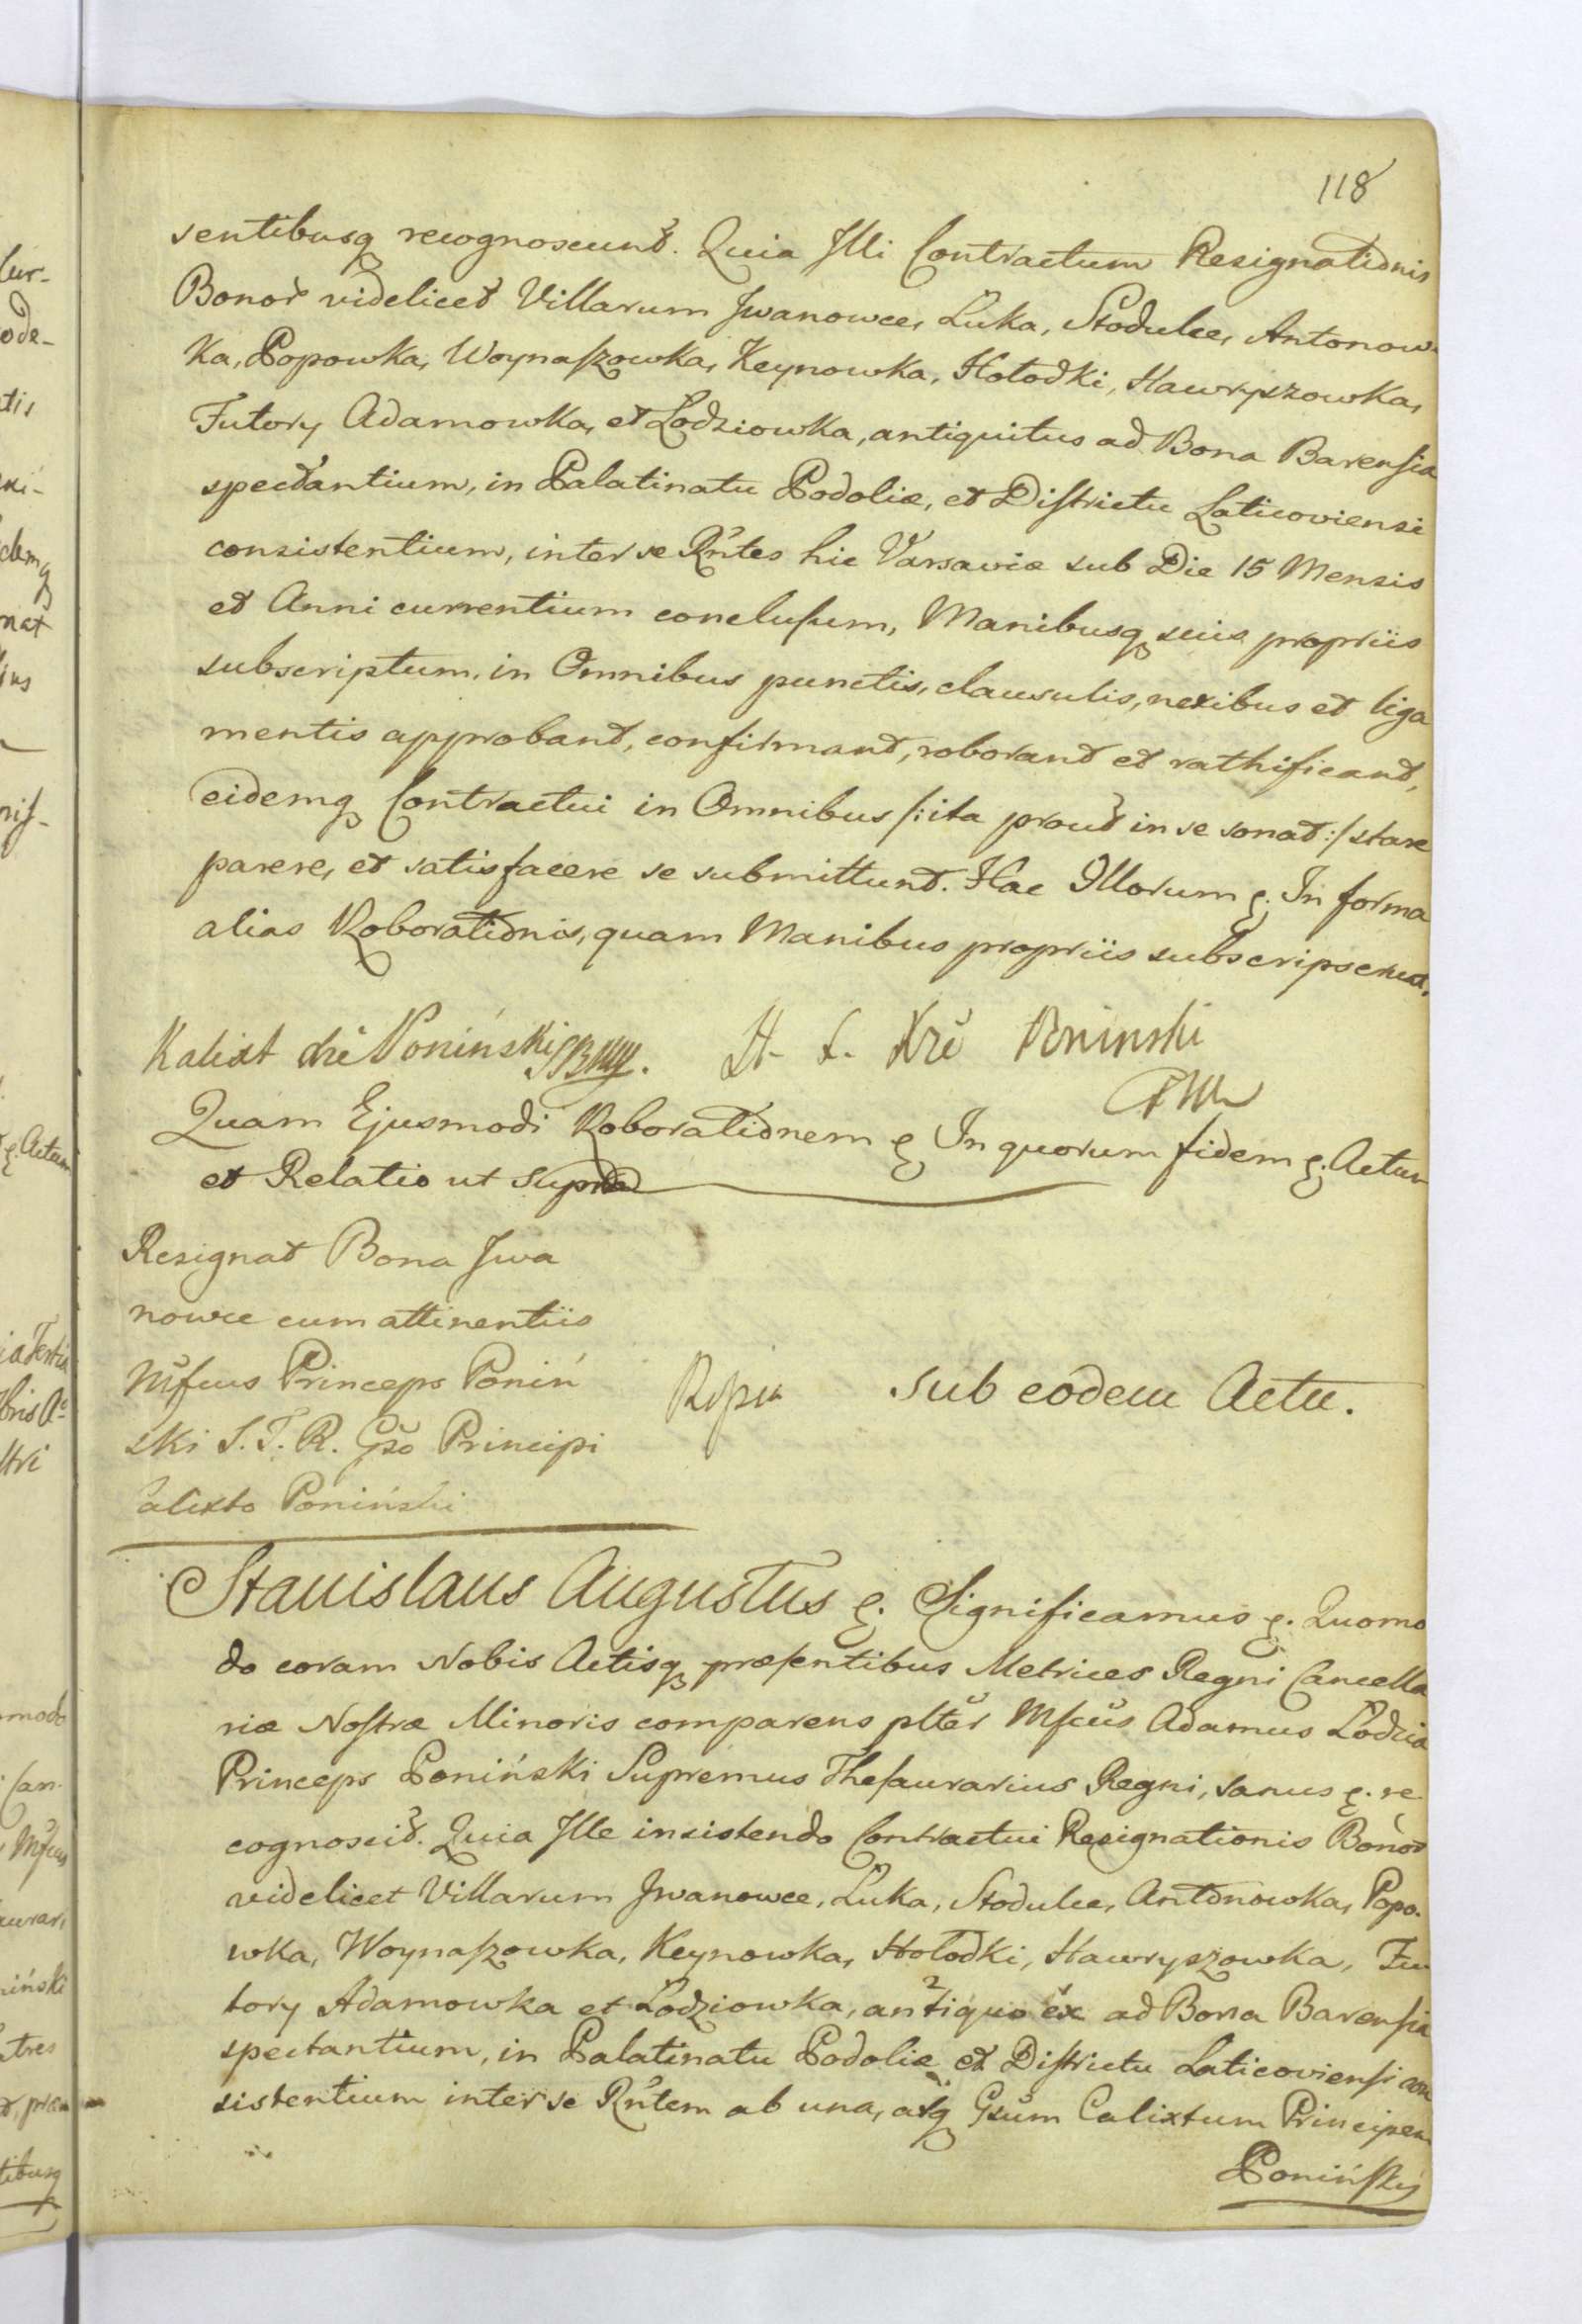 118
sentibusq recognoscunt. Quia Illi Contractum Resignationis
Bonor videlicet Villarum Jwanowce, Luka, Stodulce, Antonow-
ka, Popowka, Woynaszowka, Keynowka, Hołodki, Hawryszowka,
Futory Adamowka, et Lodziowka, antiquitus ad Bona Barensia
spectantium, in Palatinatu Podoliæ, et Districtu Laticoviensi
consistentium, inter se Rntes hic Varsaviæ sub Die 15 Mensis
et Anni currentium conclusum, Manibusq suis propriis
subscriptum, in Omnibus punctis, clausulis, nexibus et liga
mentis approbant, confirmant, roborant et rathificant,
eidemq Contractui in Omnibus /:ita prout in se sonat:/ stare
parere, et satisfacere se submittunt. Hac Illorum &. In forma
alias Roborationis, quam Manibus propriis subscripserunt.
Kalixt Poninski A. Poninski
Quam Ejusmodi Roborationem & In quorum fidem &. Actum
et Relatio ut supra
Resignat Bona Jwa
nowce cum attinentiis
Mfcus Princeps Poniń
ski S. T. R. Gso Principi
Calixto Poniński
sub eodem Actu.
Stanislaus Augustus &. Significamus &. Quomo
do coram Nobis Actisq præsentibus Metrices Regni Cancella
riæ Nostræ Minoris comparens plter Mfcus Adamus Lodzia
Princeps Poniński Supremus Thesaurarius Regni, sanus &. re
cognoscit. Quia Ille insistendo Contractui Resignationis Bonor
videlicet Villarum Jwanowce, Luka, Stodulce, Antonowka, Popo-
wka, Woynaszowka, Keynowka, Hołodki, Hawryszowka, Fu
tory Adamowka et Lodziowka, antiquo ex ad Bona Barensia
spectantium, in Palatinatu Podoliæ et Districtu Laticoviensi con
sistentium inter se Rntem ab una, atq Gsum Calixtum Principem
Poniński